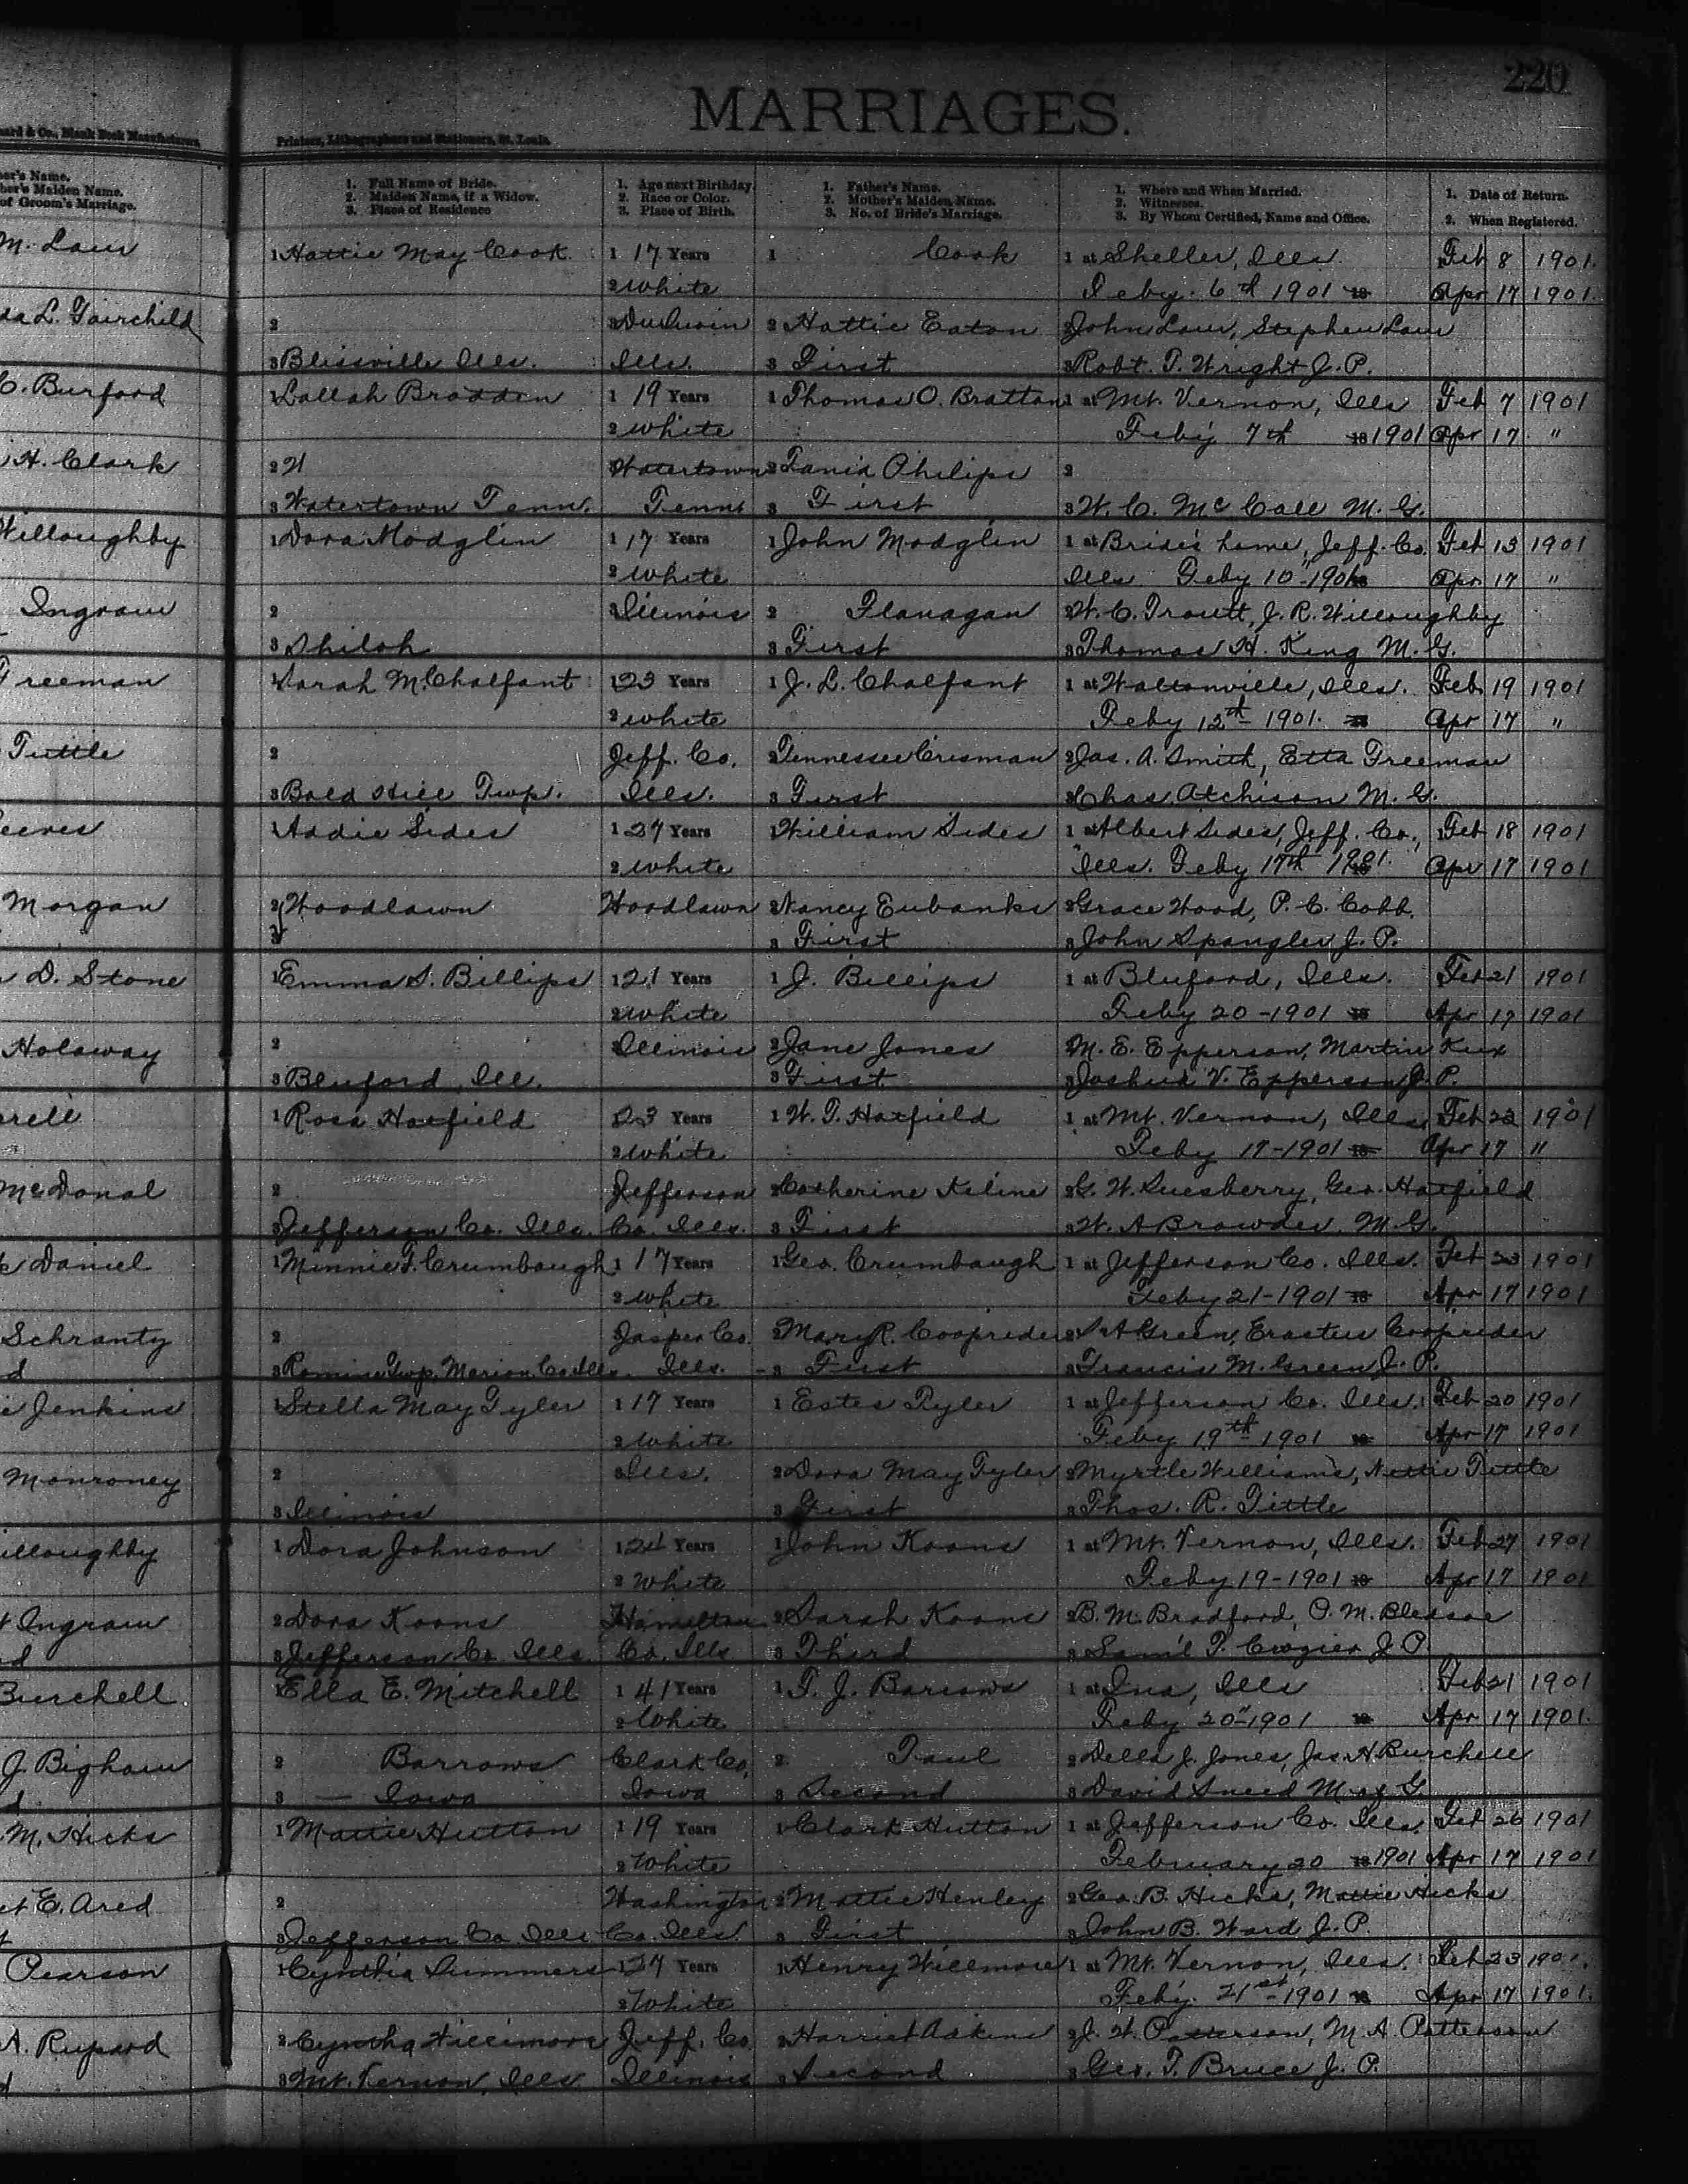 220
MARRIAGES.
Printers, Lithographers and Stationers, St. Louis.
1. Full Name of Bride. 2. Maiden Name, if a Widow. 3. Place of Residence
1. Age next Birthday. 2. Race or Color. 3. Place of Birth.
1. Father's Name. 2. Mother's Maiden Name. 3. No. of Bride's Marriage.
1. Where and When Married. 2. Witnesses. 3. By Whom Certified, Name and Office.
1. Date of Return. 2. When Registered.
M. Laur 1 Hattie May Cook 1 17 Years 1 Cook 1 at Sheller, Ills. Feb 8 1901.
2 White Feby. 6th 1901 Apr 17 1901.
da L. Fairchild 2 3 DuQuoin 2 Hattie Eaton 2 John Laur, Stephen Laur
3 Blissville Ills. Ills. 3 First 3 Robt. T. Wright J. P.
C. Burford 1 Lallah Bradden 1 19 Years 1 Thomas O. Bratton 1 at Mt. Vernon, Ills Feb 7 1901
2 White Feby 7th 18 1901 Apr 17 "
H. Clark 2 3 Watertown 2 Philips 2
3 Watertown Tenn. Tenn 3 First 3 W. C. McCall M. G.
Willoughby 1 Dora Modglin 1 17 Years 1 John Modglin 1 at Bride's home, Jeff. Co. Feb 13 1901
2 White Ills Feby 10" 1901 Apr 17 "
Ingram 2 3 Illinois 2 Flanagan 2 W. C. Troutt, J. R. Willoughby
3 Shiloh 3 First 3 Thomas H. King M. G.
Freeman 1 Sarah M. Chalfant 1 23 Years 1 J. L. Chalfant 1 at Waltonville, Ills. Feb 19 1901
2 White Feby 12th 1901. 18 Apr 17 "
Tuttle 2 Jeff. Co. 2 Tennessee Crisman 2 Jas. A. Smith, Etta Freeman
3 Bald Hill Twp. Ills. 3 First 3 Chas. Atchison M. G.
eeves 1 Addie Sides 1 27 Years 1 William Sides 1 at Albert Sides, Jeff. Co., Feb 18 1901
2 White Ills. Feby 17th 1901. Apr 17 1901
Morgan 2 Woodlawn Woodlawn 2 Nancy Eubanks 2 Grace Wood, P. C. Cobb.
3 3 First 3 John Spangler J. P.
D. Stone 1 Emma S. Billips 1 21 Years 1 J. Billips 1 at Bluford, Ills. Feb 21 1901
2 White Feby 20 - 1901 18 Apr 17 1901
Holoway 2 3 Illinois 2 Jane Jones 2 M. E. Epperson, Martin
3 Bluford, Ill. 3 First 3 Joshua V. Epperson J. P.
1 Rosa Hatfield 1 23 Years 1 W. T. Hatfield 1 at Mt. Vernon, Ills. Feb 22 1901
2 White Feby 17-1901 18 Apr 17 "
McDonal 2 Jefferson 2 Catherine Kiline 2 G. W. Quesberry, Geo. Hatfield
3 Jefferson Co. Ills. Co. Ills. 3 First 3 W. A Browder. M. G.
Daniel 1 Minnie F. Crumbaugh 1 17 Years 1 Geo. Crumbaugh 1 at Jefferson Co. Ills. Feb 23 1901
2 White Feby 21-1901 18 Apr 17 1901
Schranty 2 3 Jasper Co. 2 Mary R. Cooprider 2 A Green, Erastus Cooprider
3 Romine Twp. Marion Co Ills. Ills. 3 First 3 Francis M. Green J. P.
Jenkins 1 Stella May Tyler 1 17 Years 1 Estes Tyler 1 at Jefferson Co. Ills. Feb 20 1901
2 White Feby 19th 1901 18 Apr 17 1901
Monroney 2 3 Ills. 2 Dora May Tyler 2 Myrtle Williams, Nettie Tittle
3 Illinois 3 First 3 Thos. R. Tittle
illoughby 1 Dora Johnson 1 24 Years 1 John Koons 1 at Mt. Vernon, Ills. Feb 27 1901
2 White Feby 19-1901 18 Apr 17 1901
Ingram 2 Dora Koons Hamilton 2 Sarah Koons 2 B. M. Bradford, O. M. Bledsoe
3 Jefferson Co. Ills. Co. Ills 3 Third 3 Sam'l T. Crozier J. P.
Burchell 1 Ella E. Mitchell 1 41 Years 1 T. J. Barrows 1 at Ina, Ills Feb 21 1901
2 White Feby 20" 1901 18 Apr 17 1901.
J. Bigham 2 Barrows Clark Co, 2 Paul 2 Della J. Jones, Jas. H. Burchell
3 — Iowa Iowa 3 Second 3 David Sneed M. of G.
M. Hicks 1 Mattie Hutton 1 19 Years 1 Clark Hutton 1 at Jefferson Co. Ills. Feb 26 1901
2 White February 20 18 1901 Apr 17 1901
E. Ared 2 Washington 2 Mattie Henley 2 Geo. B. Hicks, Mattie Hicks
3 Jefferson Co Ills Co. Ills. 3 First 3 John B. Ward J. P.
Pearson 1 Cynthia Summers 1 27 Years 1 Henry Willmore 1 at Mt. Vernon, Ills. Feb 23 1901.
2 White Feby. 21st 1901 18 Apr 17 1901.
A. Rupard 2 Cyntha Willimore Jeff. Co 2 Harriet Adkins 2 J. W. Patterson, M. A. Patterson
3 Mt. Vernon, Ills. Illinois 3 Second 3 Geo. T. Bruce J. P.